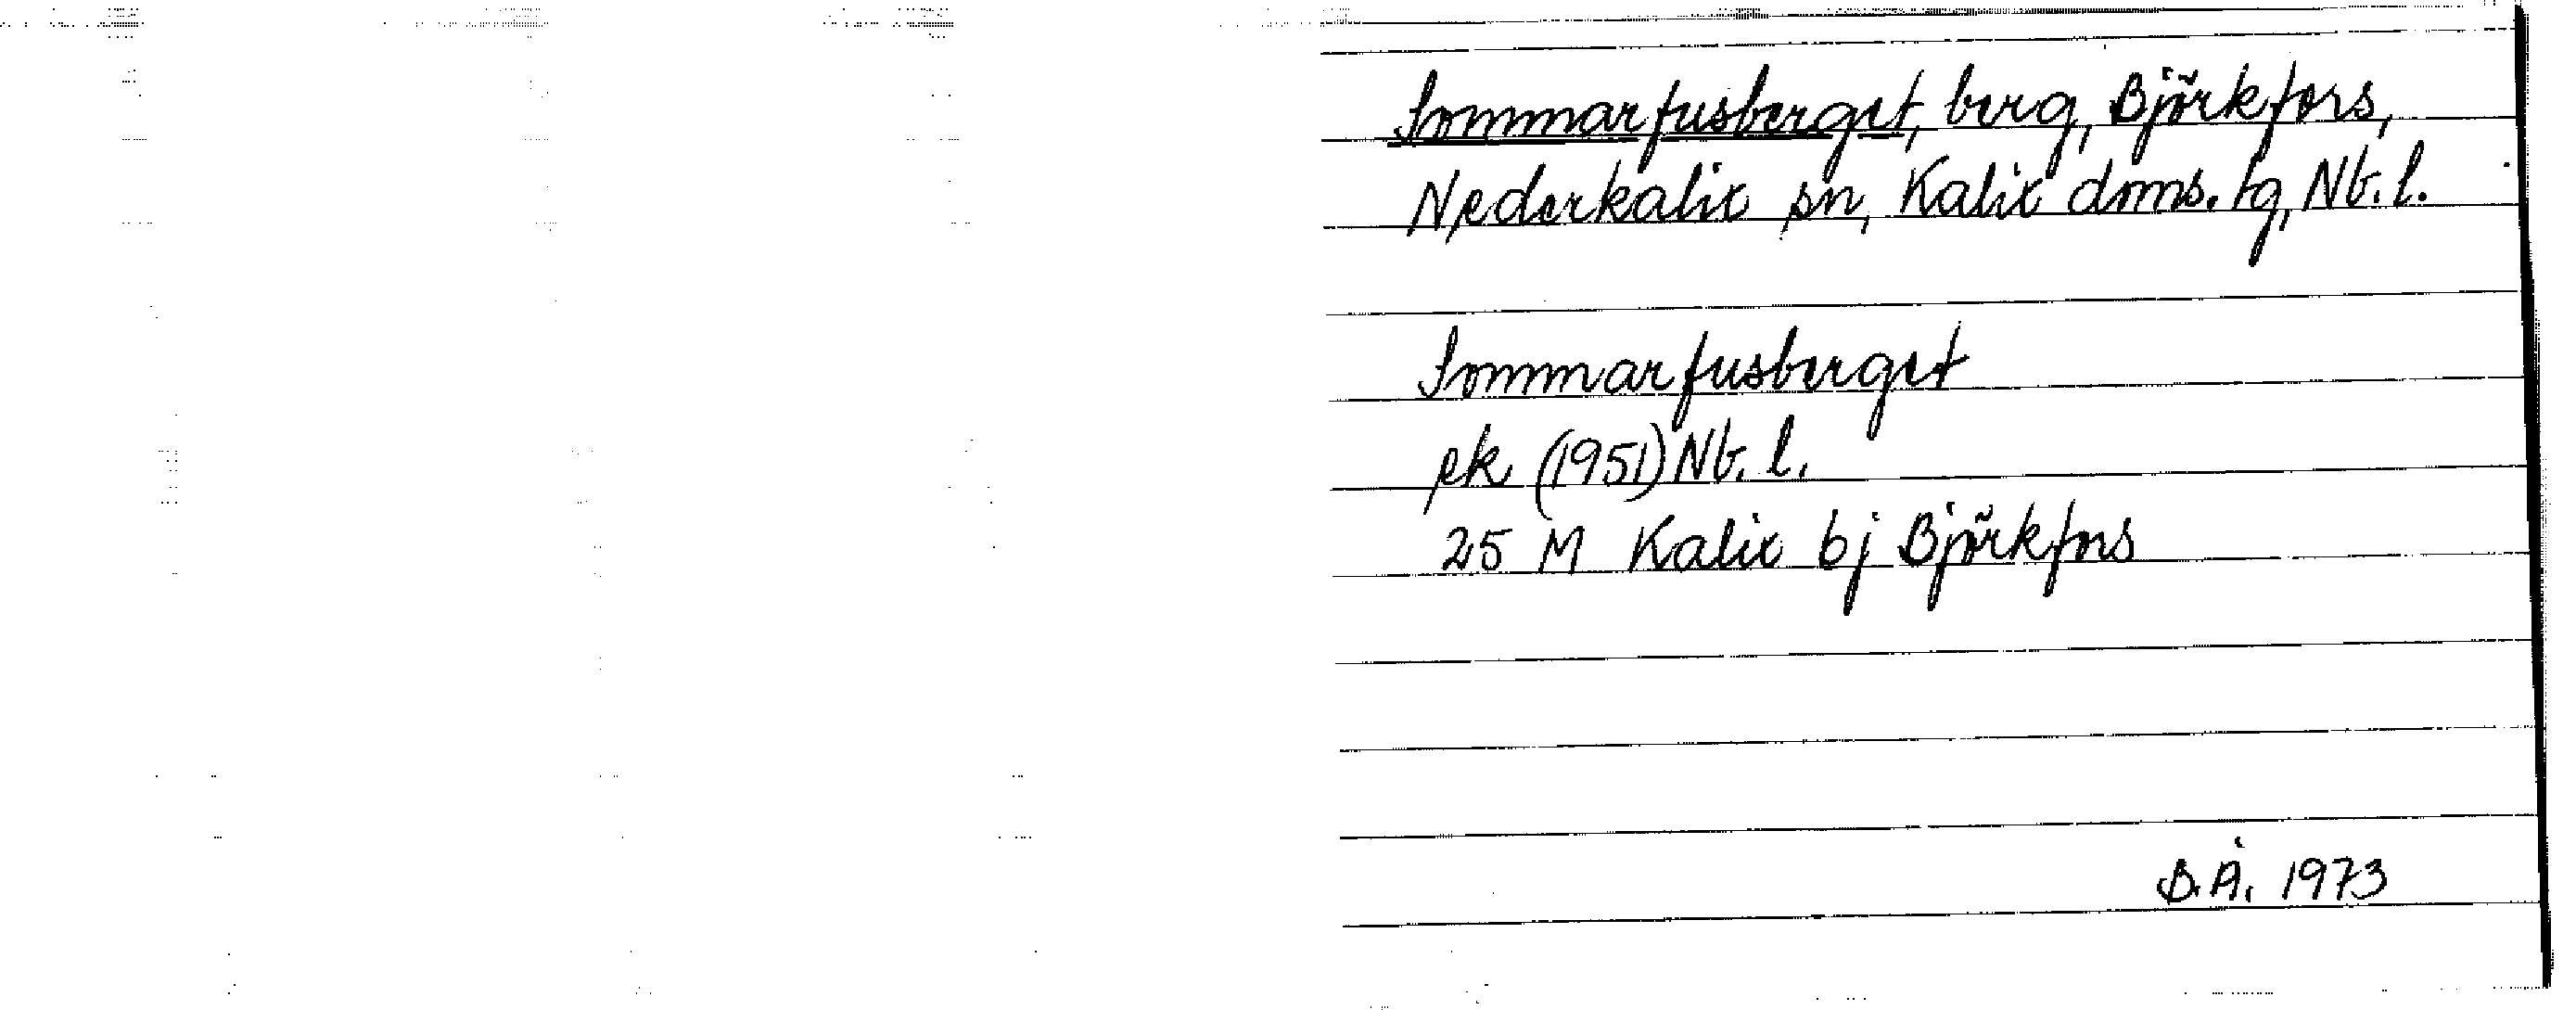 Sommarfusberget, berg, Björkfors,
Nederkalix sn, Kalix doms. tg, Nb. l.
Sommarfusberget
ek (1951) Nb. l.
25 M Kalix bj Björkfors
B.Å. 1973